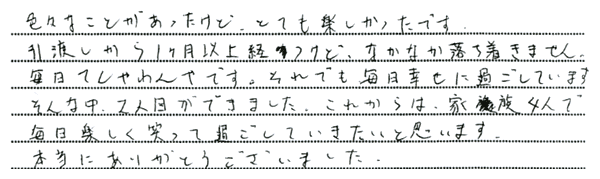 色々なことがあったけど、とても楽しかったです。
引渡しから1ヶ月以上経つけど、なかなか落ち着きません。
毎日てんやわんやです。それでも毎日幸せに過ごしています
そんな中、2人目ができました。これからは、家族4人で
毎日楽しく笑って過ごしていきたいと思います。
本当にありがとうございました。